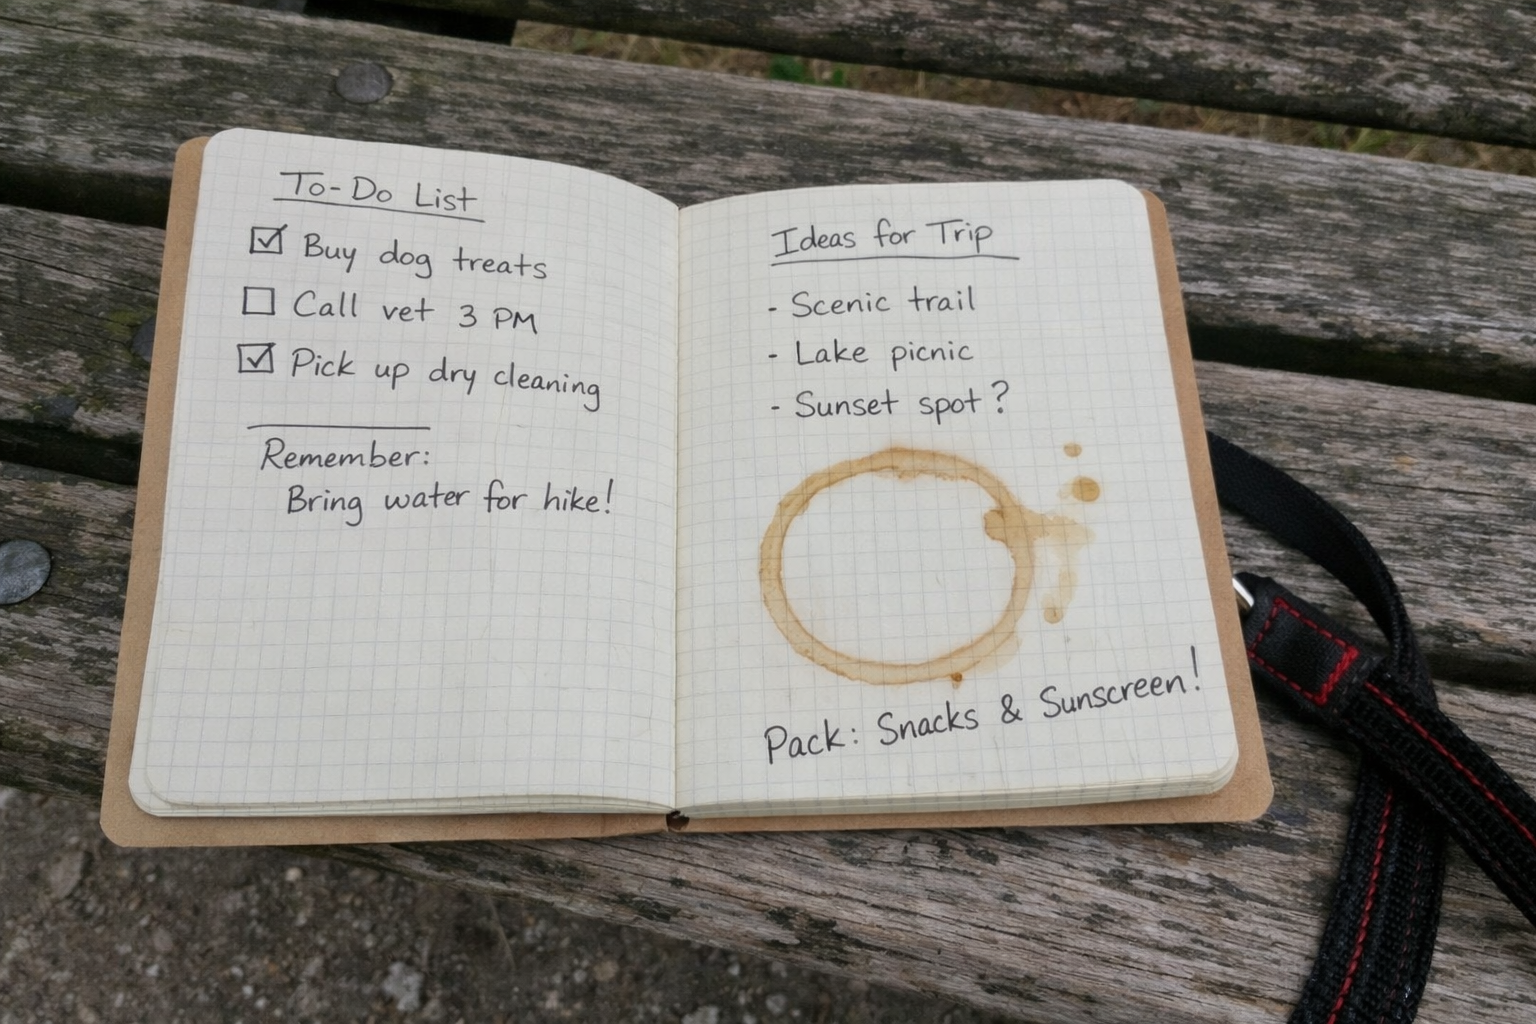 To-Do List
☑ Buy dog treats
☐ Call vet 3 PM
☑ Pick up dry cleaning
Remember:
Bring water for hike!
Ideas for Trip
- Scenic trail
- Lake picnic
- Sunset spot?
Pack: Snacks & Sunscreen!